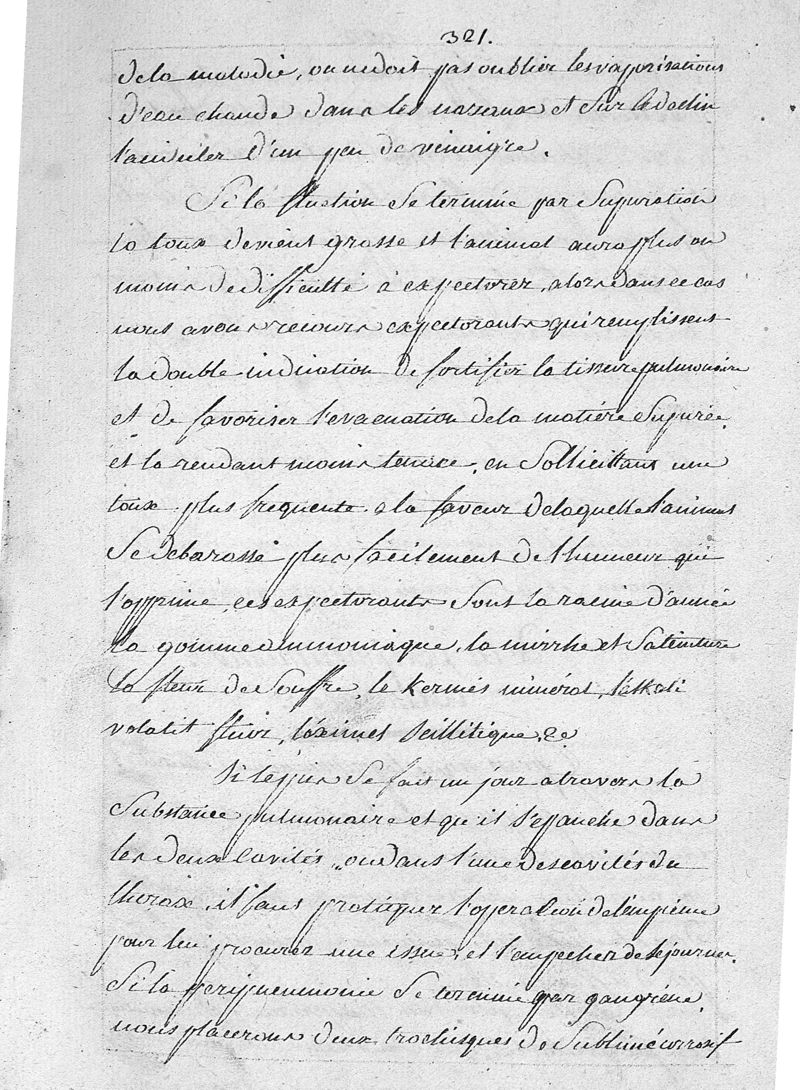 321.
de la maladie, on ne doit pas oublier les vaporisations
d'eau chaude dans les nazeaux et sur le declin
l'aciduler d'un peu de vinaigre.
Si la fluction se termine par supuration
la toux devient grasse et l'animal aura plus ou
moins de difficulté à expectorer, alors dans ce cas
nous avons recours expectorants qui remplissent
la double indication de fortifier la tissure pulmonaire
et de favoriser l'evacuation de la matière supurée
et la rendant moins tenace, en sollicittant une
toux plus frequente a la faveur de laquelle l'animal
se debarasse plus facilement de l'humeur qui
l'opprime, ces expectorants sont la racine d'aunée
la gomme ammoniaque, la mirrhe et sa teinture
la fleur de souffre, le kermés minéral, l'alkali
volatil fluor, l'oximel scillitique, &c
Si le pus se fait un jour a travers la
substance pulmonaire et qu'il s'epanche dans
les deux cavités, ou dans l'une des cavités du
thorax, il faut pratiquer l'opperation de l'empieme
pour lui procurer une issue, et l'empecher de sejourner.
Si la peripneumonie se termine par gangrène,
nous placerons deux trochisques de sublimé corrosif